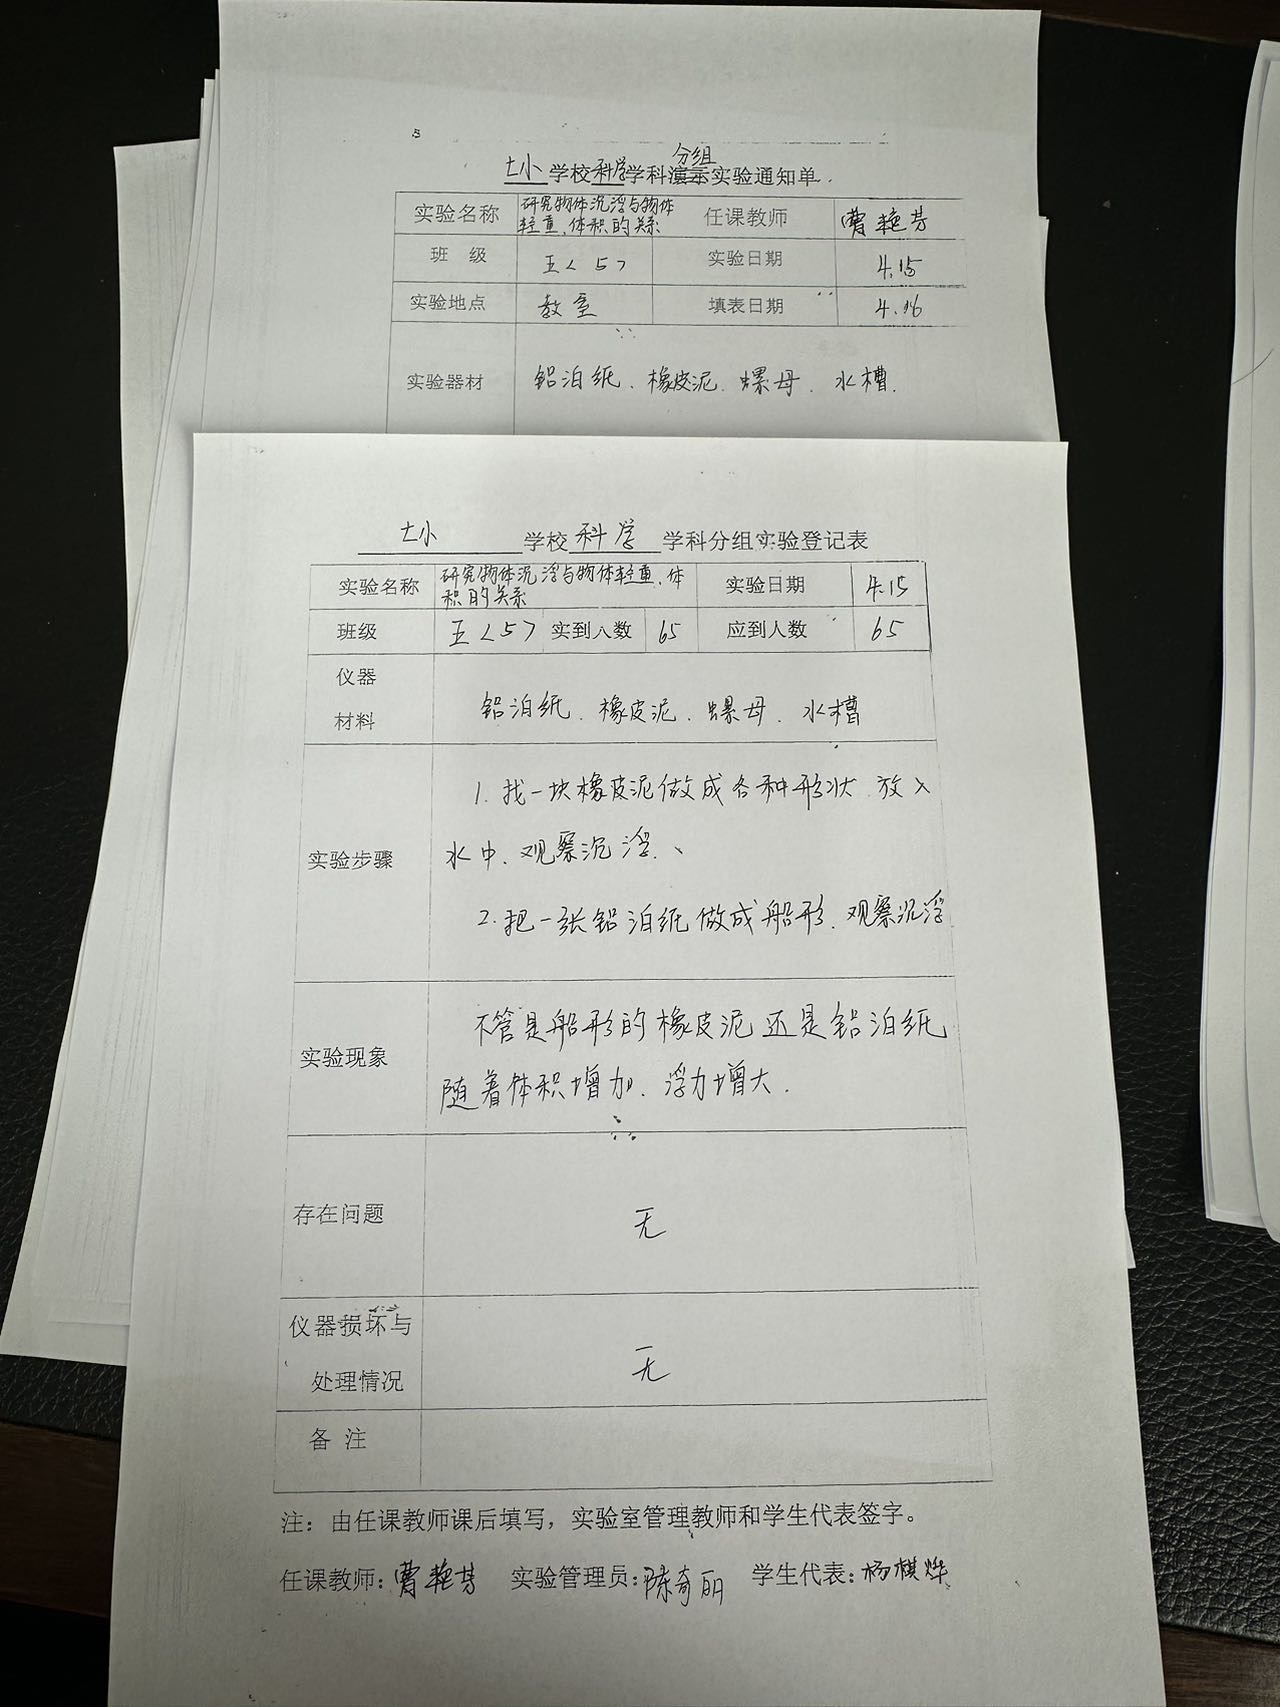 七小学校科学学科演示分组实验通知单
实验名称 研究物体沉浮与物体轻重、体积的关系 任课教师 曹艳芳
班 级 五<5> 实验日期 4.15
实验地点 教室 填表日期 4.16
实验器材 铝泊纸、橡皮泥、螺母、水槽.
七小 学校 科学 学科分组实验登记表
实验名称 研究物体沉浮与物体轻重、体积的关系 实验日期 4.15
班级 五<5> 实到人数 65 应到人数 65
仪器
材料 铝泊纸、橡皮泥、螺母、水槽
1. 找一块橡皮泥做成各种形状 放入
实验步骤 水中、观察沉浮、
2. 把一张铝泊纸做成船形、观察沉浮
不管是船形的橡皮泥还是铝泊纸
实验现象
随着体积增加、浮力增大.
存在问题 无
仪器损坏与
处理情况 无
备 注
注：由任课教师课后填写，实验室管理教师和学生代表签字。
任课教师: 曹艳芳 实验管理员: 陈奇丽 学生代表: 杨棋烨